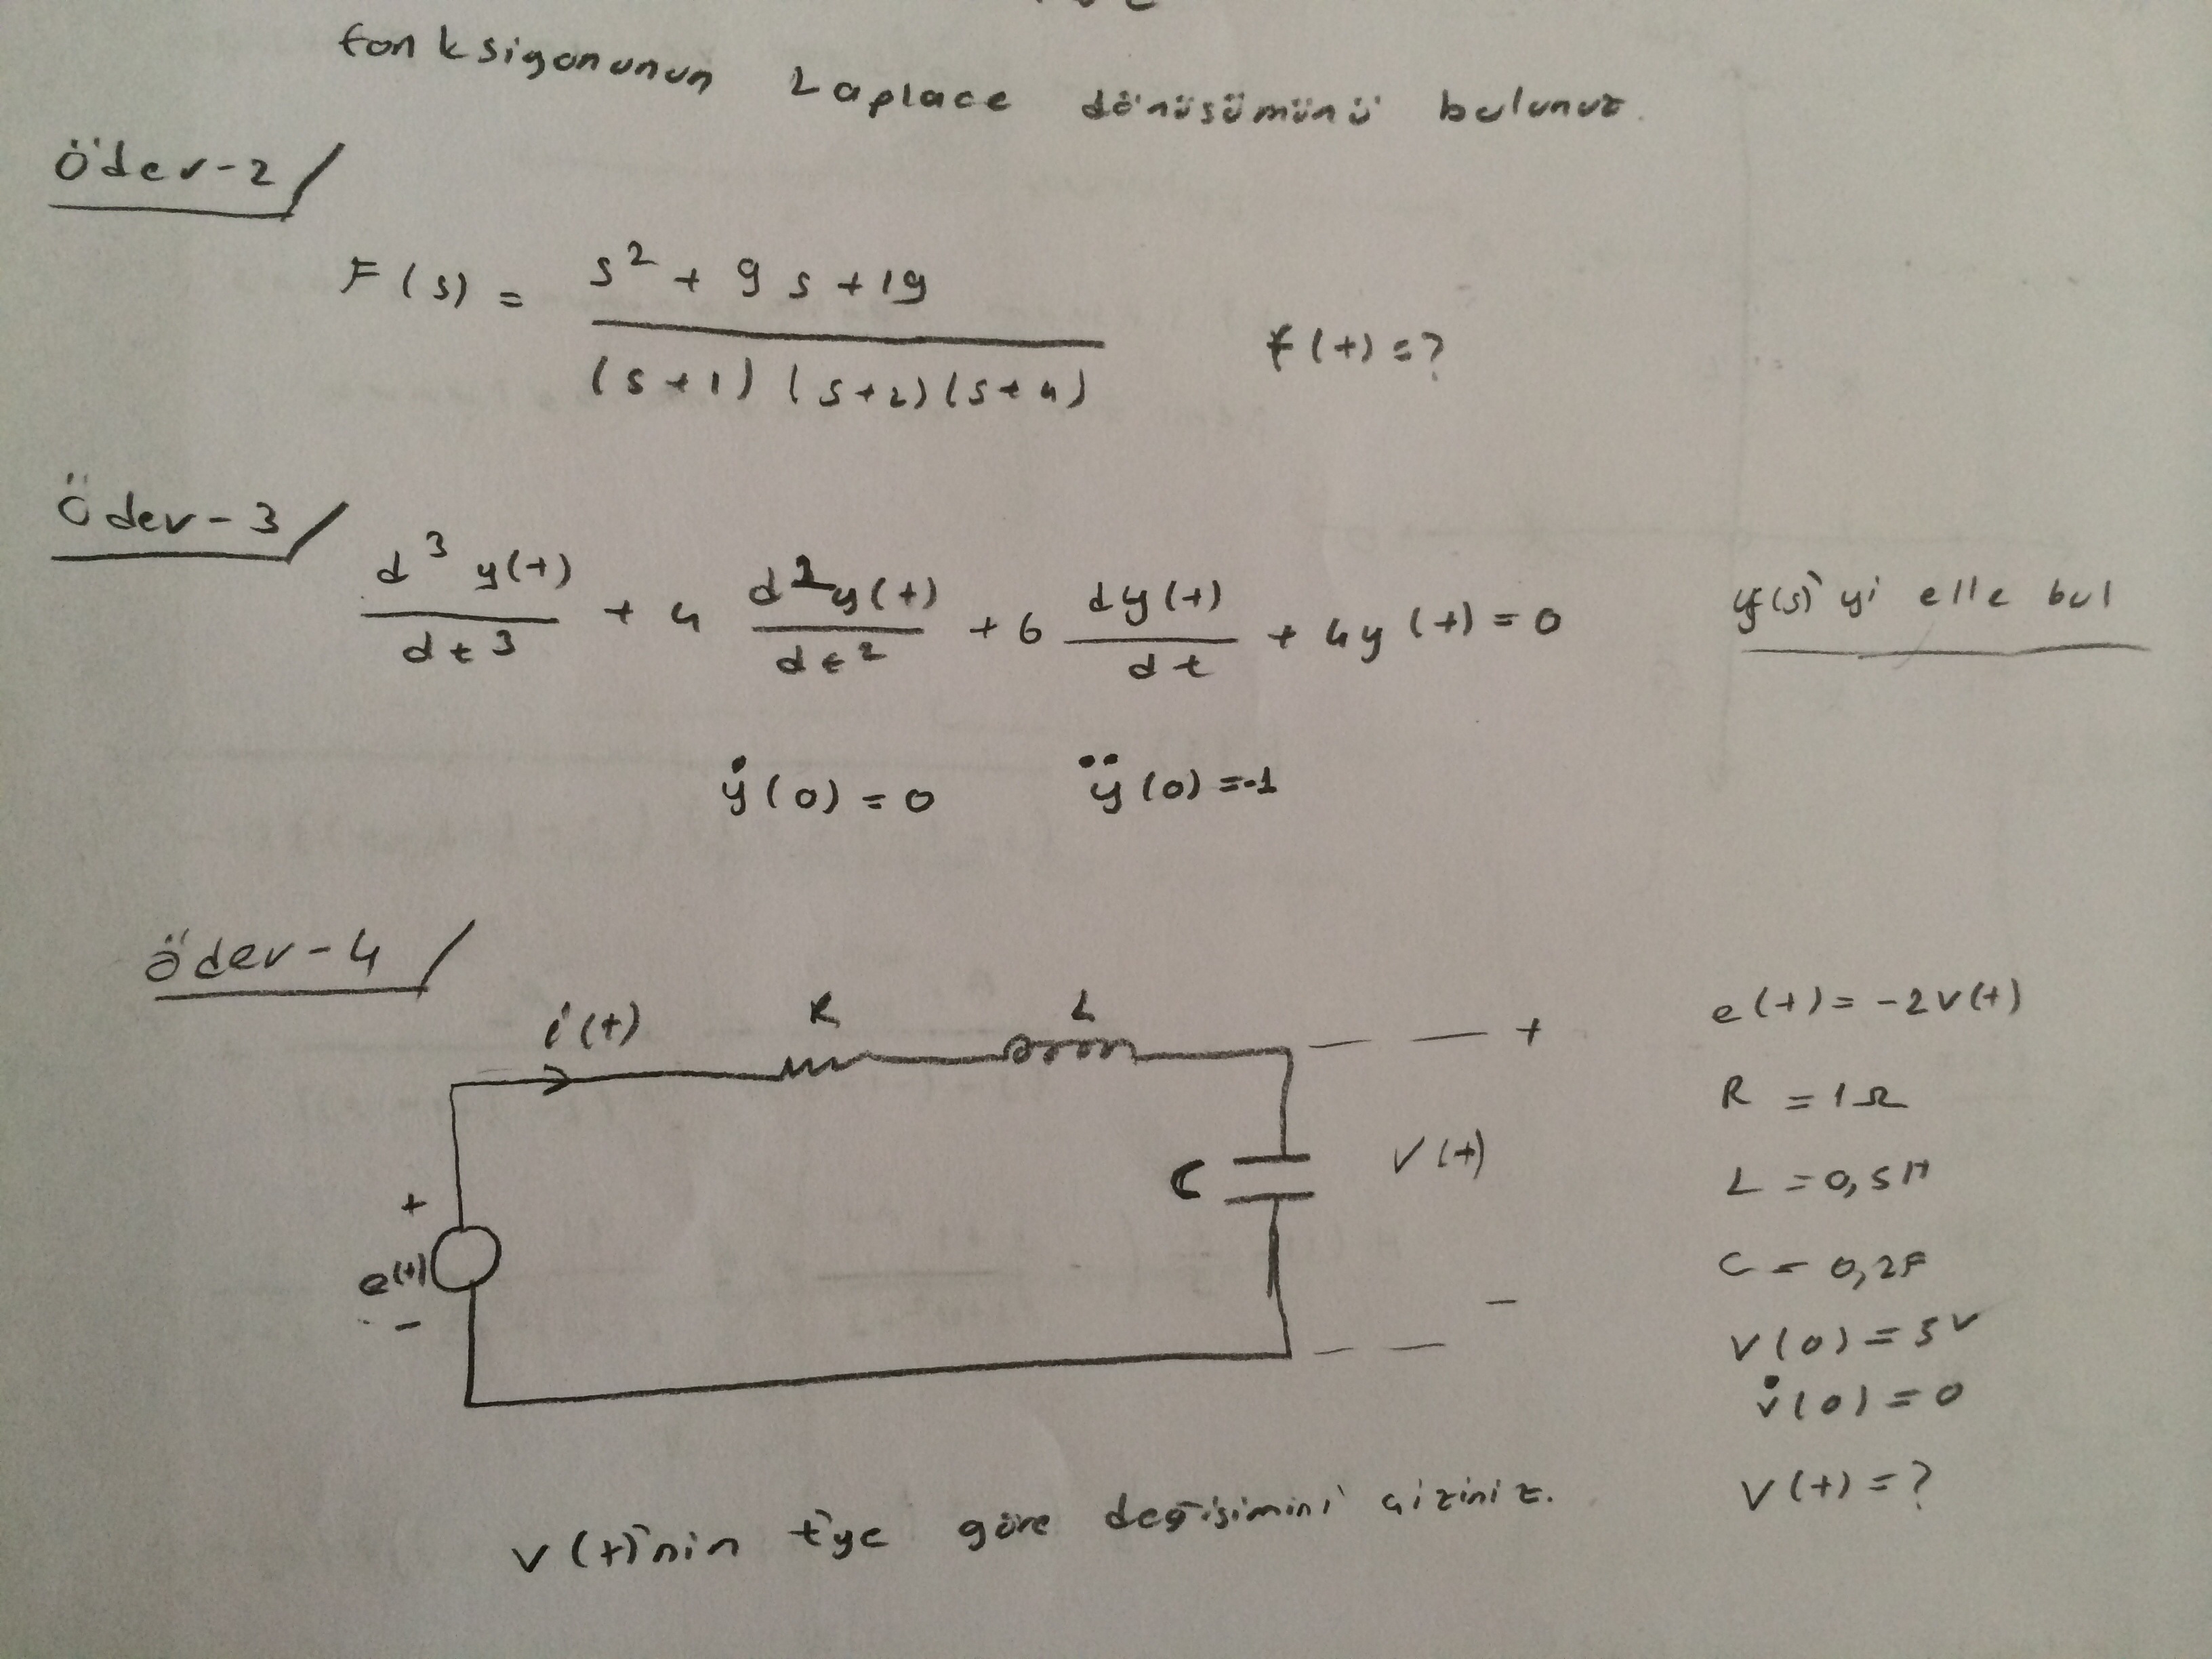 fonksiyonunun Laplace dönüşümünü bulunuz.
Ödev-2/
F(s) = (s² + 9s + 19) / ((s+1)(s+2)(s+4))    f(t)=?
Ödev-3/
d³y(t)/dt³ + 4 d²y(t)/dt² + 6 dy(t)/dt + 4y(t) = 0    y(s)'yi elle bul
ẏ(0) = 0    ÿ(0) = -1
Ödev-4/
i(t)    R    L    +
e(t) = -2v(t)
R = 1Ω
C    v(t)
L = 0,5H
+
e(t)
-
C = 0,2F
-
v(0) = 5V
v̇(0) = 0
v(t) = ?
v(t)'nin t'ye göre değişimini çiziniz.